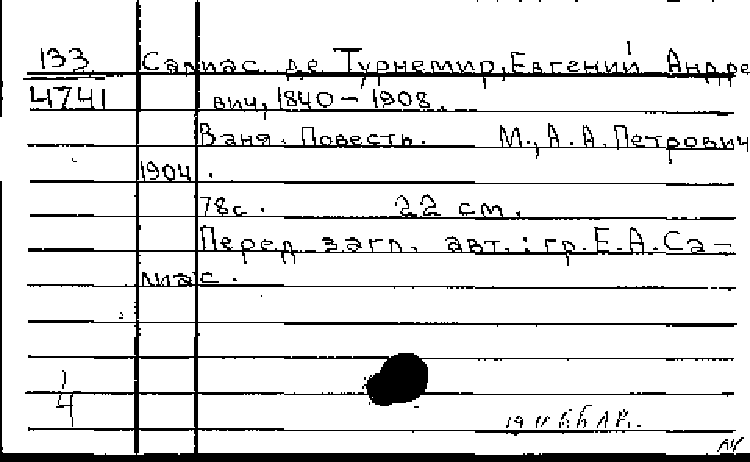 133 Салиас де Турнемир, Евгений Андре
4741 вич, 1840 - 1908.
Ваня. Повесть. М., А.А. Петрович
1904.
78с. 22 см.
Перед загл. авт.: гр. Е.А. Са-
лиас.
1
4